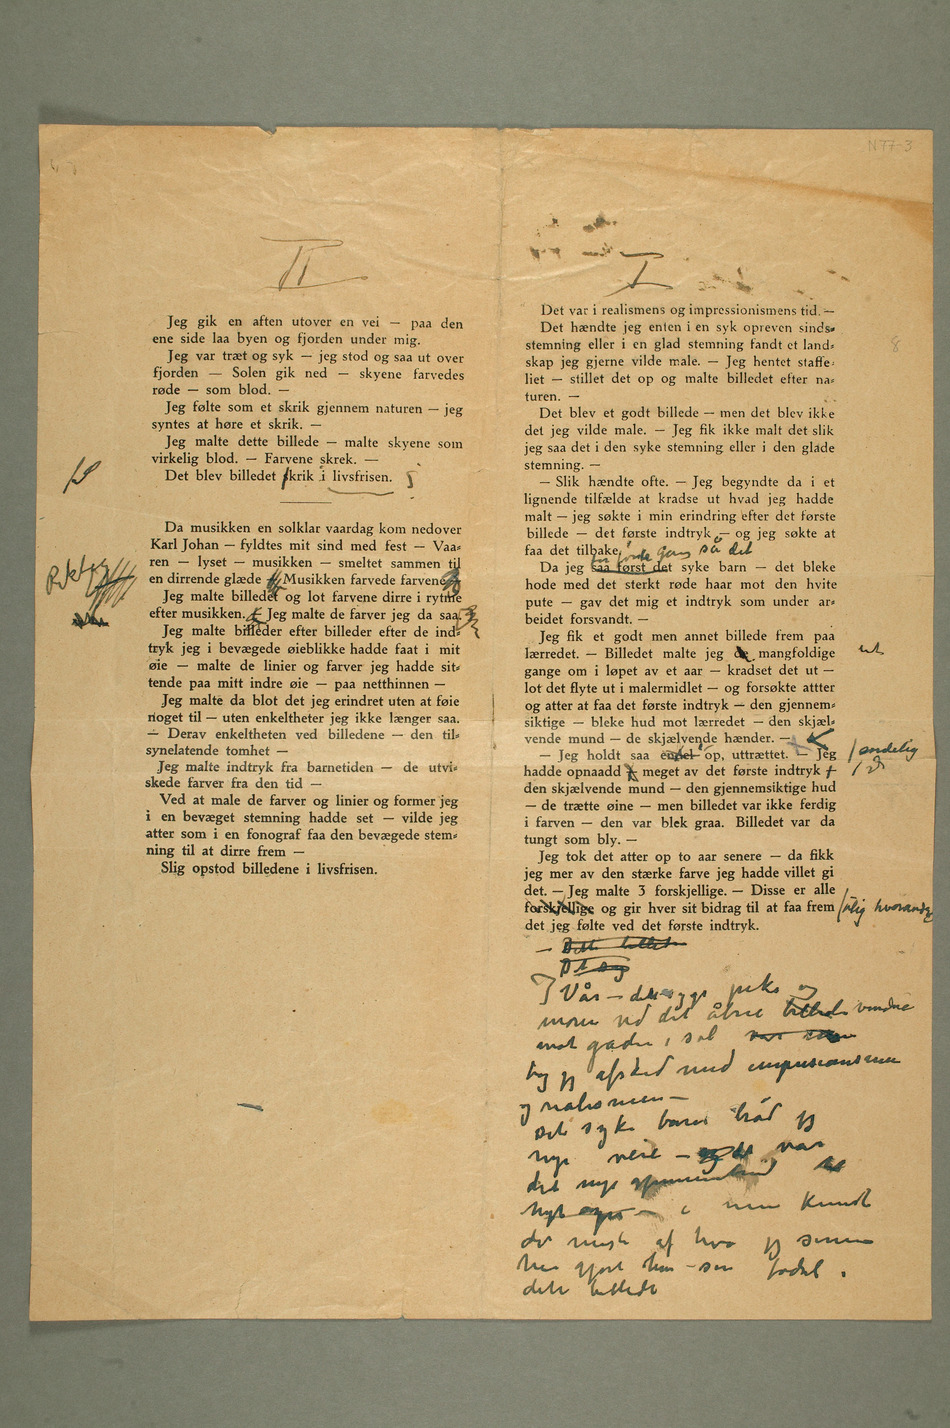 N 77-3
II
Jeg gik en aften utover en vei — paa den
ene side laa byen og fjorden under mig.
Jeg var træt og syk — jeg stod og saa ut over
fjorden — Solen gik ned — skyene farvedes
røde — som blod. —
Jeg følte som et skrik gjennem naturen — jeg
syntes at høre et skrik. —
Jeg malte dette billede — malte skyene som
virkelig blod. — Farvene skrek. —
Det blev billedet skrik i livsfrisen.
Da musikken en solklar vaardag kom nedover
Karl Johan — fyldtes mit sind med fest — Vaa-
ren — lyset — musikken — smeltet sammen til
en dirrende glæde Musikken farvede farvene
Jeg malte billedet og lot farvene dirre i rytme
efter musikken. Jeg malte de farver jeg da saa.
Jeg malte billeder efter billeder efter de ind-
tryk jeg i bevægede øieblikke hadde faat i mit
øie — malte de linier og farver jeg hadde sit-
tende paa mitt indre øie — paa netthinnen —
Jeg malte da blot det jeg erindret uten at føie
noget til — uten enkeltheter jeg ikke længer saa.
— Derav enkeltheten ved billedene — den til-
synelatende tomhet —
Jeg malte indtryk fra barnetiden — de utvi-
skede farver fra den tid —
Ved at male de farver og linier og former jeg
i en bevæget stemning hadde set — vilde jeg
atter som i en fonograf faa den bevægede stem-
ning til at dirre frem —
Slig opstod billedene i livsfrisen.
I
Det var i realismens og impressionismens tid. —
Det hændte jeg enten i en syk opreven sinds-
stemning eller i en glad stemning fandt et land-
skap jeg gjerne vilde male. — Jeg hentet staffe-
liet — stillet det op og malte billedet efter na-
turen. —
8
Det blev et godt billede — men det blev ikke
det jeg vilde male. — Jeg fik ikke malt det slik
jeg saa det i den syke stemning eller i den glade
stemning. —
— Slik hændte ofte. — Jeg begyndte da i et
lignende tilfælde at kradse ut hvad jeg hadde
malt — jeg søkte i min erindring efter det første
billede — det første indtryk — og jeg søkte at
faa det tilbake.
første gang så det
Da jeg saa først det syke barn — det bleke
hode med det sterkt røde haar mot den hvite
pute — gav det mig et indtryk som under ar-
beidet forsvandt. —
Jeg fik et godt men annet billede frem paa
lærredet. — Billedet malte jeg mangfoldige
gange om i løpet av et aar — kradset det ut —
lot det flyte ut i malermidlet — og forsøkte attter
og atter at faa det første indtryk — den gjennem-
siktige — bleke hud mot lærredet — den skjæl-
vende mund — de skjælvende hænder. —
— Jeg holdt saa endel op, uttrættet. — Jeg / endelig
hadde opnaadd meget av det første indtryk
den skjælvende mund — den gjennemsiktige hud
— de trætte øine — men billedet var ikke ferdig
i farven — den var blek graa. Billedet var da
tungt som bly. —
Jeg tok det atter op to aar senere — da fikk
jeg mer av den stærke farve jeg hadde villet gi
det. — Jeg malte 3 forskjellige. — Disse er alle
forskjellige og gir hver sit bidrag til at faa frem / ulig hverandre
det jeg følte ved det første indtryk.
— Dette billede
Det syg
I Vår — den syge pike og
moren ved det åbne billede vindue
mot gaden i sol
tog jeg afsked med impresionismen
og realismen —
Det syke barn brød jeg
nye veie — var
det nye
nyt i min kunst
de meste af hva jeg senere
har gjort har sin fødsel i
dette billede